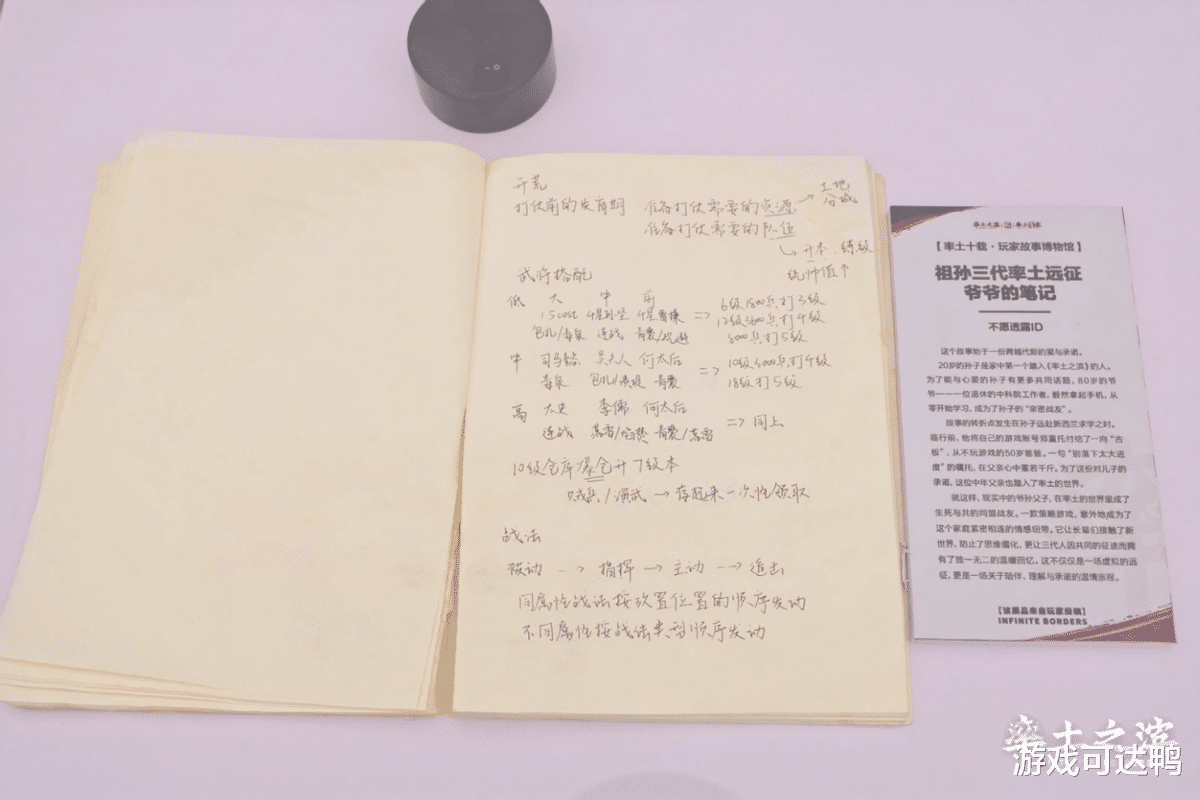 开荒
打仗前的发育期 准备打仗需要的资源 → 土地 分城
准备打仗需要的队伍
↳ 升本、练级
统帅值↑
武将搭配
低 大 中 前
15cost 4星孙坚 4星曹操 => 6级1800兵打3级
12级3600兵打4级
连战 8000兵打5级
中 司马懿 吴夫人 何太后 => 10级5000兵打4级
18级打5级
高 太史 李儒 何太后 => 同上
连战
10级仓库爆仓升7级本
贼兵/演武 → 存起来一次性领取
战法
被动 --> 指挥 → 主动 --> 追击
同属性战法按放置位置的顺序发动
不同属性按战法类型顺序发动
率土之滨
【率土十载·玩家故事博物馆】
祖孙三代率土远征
爷爷的笔记
不愿透露ID
这个故事始于一份跨越代际的爱与承诺。
20岁的孙子是家中第一个踏入《率土之滨》的人。
为了能与心爱的孙子有更多共同话题，80岁的爷
爷——一位退休的中科院工作者，毅然拿起手机，从
零开始学习，成为了孙子的“亲密战友”。
故事的转折点发生在孙子远赴新西兰求学之时。
临行前，他将自己的游戏账号郑重托付给了一向“古
板”、从不玩游戏的50岁爸爸。一句“别落下太大进
度”的嘱托，在父亲心中重若千斤。为了这份对儿子的
承诺，这位中年父亲也踏入了率土的世界。
就这样，现实中的爷孙父子，在率土的世界里成了
生死与共的同盟战友。一款策略游戏，意外地成为了
这个家庭紧密相连的情感纽带。它让长辈们接触了新
世界，防止了思维僵化，更让三代人因共同的征途而拥
有了独一无二的温暖回忆。这不仅仅是一场虚拟的远
征，更是一场关于陪伴、理解与承诺的温情旅程。
【该展品来自玩家投稿】
INFINITE BORDERS
率土之滨
游戏可达鸭